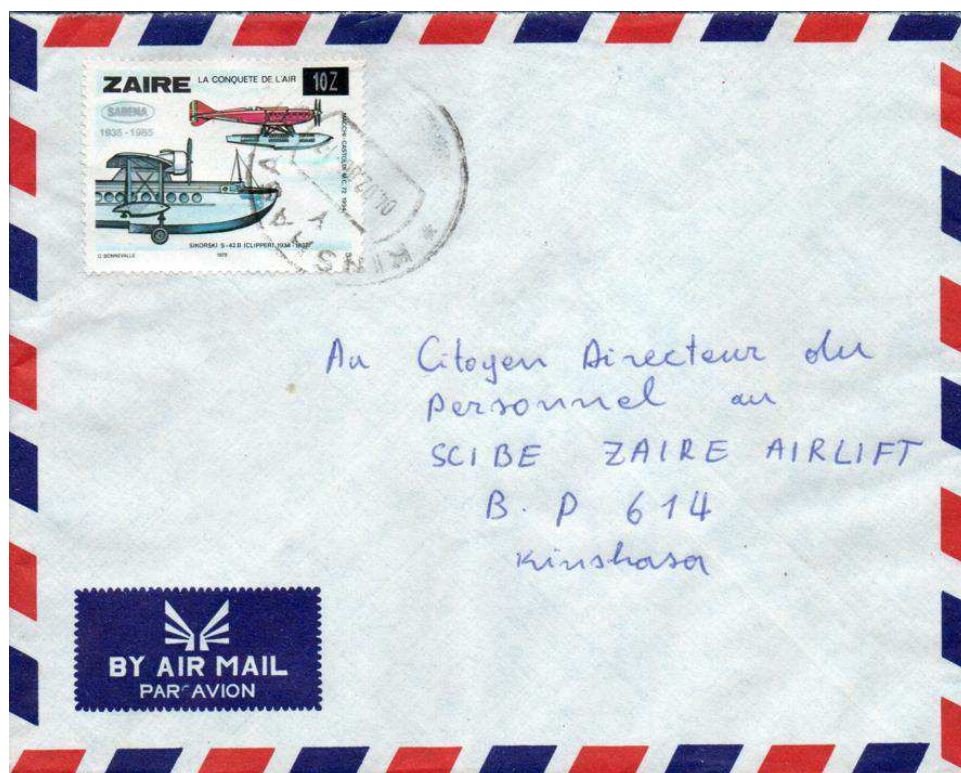 ZAIRE LA CONQUETE DE L'AIR 10Z
SABENA
1935-1985
MACCHI CASTOLDI M.C. 72 1934
SIKORSKI S-42.B (CLIPPER) 1934-1937
KINSHASA
A
Au Citoyen Directeur du
Personnel au
SCIBE ZAIRE AIRLIFT
B.P 614
Kinshasa
BY AIR MAIL
PAR AVION